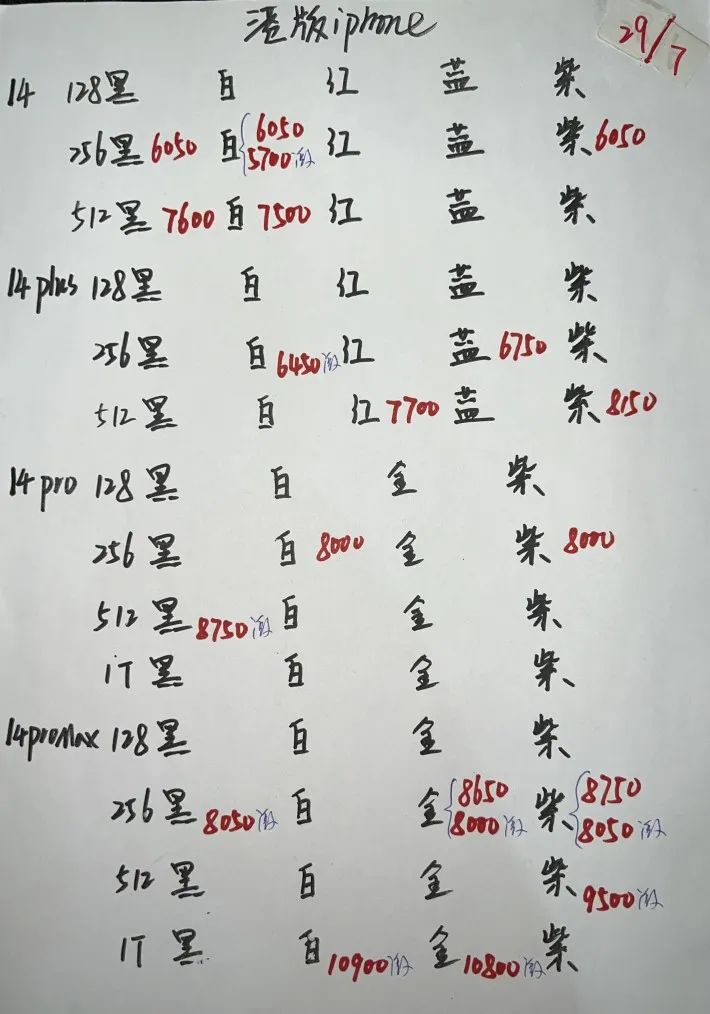 港版iphone
29/7
14 128黑 白 红 蓝 紫
256黑6050 白{6050 5700激 红 蓝 紫6050
512黑7600白7500 红 蓝 紫
14plus 128黑 白 红 蓝 紫
256黑 白6450激红 蓝6750紫
512黑 白 红7700蓝 紫8150
14pro 128黑 白 金 紫
256黑 白8000 金 紫8000
512黑8750激白 金 紫
1T黑 白 金 紫
14proMax 128黑 白 金 紫
256黑8050激白 金{8650 8000激 紫{8750 8050激
512黑 白 金 紫9500激
1T黑 白10900激 金10800激紫